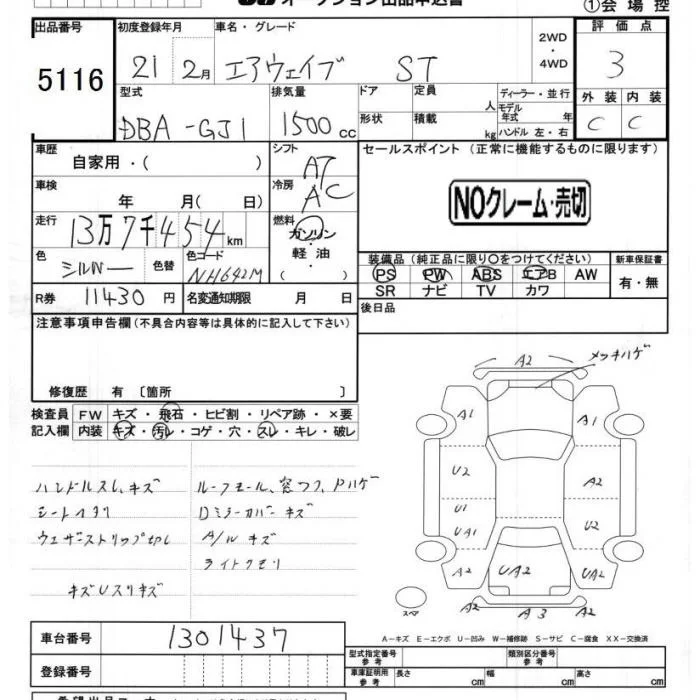 オークション出品申込書
①会場控
出品番号 初度登録年月 車名・グレード 2WD・4WD 評価点
5116 21 2月 エアウェイブ ST 3
型式 排気量 ドア 定員 人 ディーラー・並行 外装 内装
DBA-GJ1 1500cc 形状 積載 kg モデル年式 年 ハンドル 左・右 C C
車歴 自家用・( ) シフト AT セールスポイント (正常に機能するものに限ります)
車検 年 月( 日) 冷房 AC
NOクレーム・売切
走行 13万7千454km 燃料 ガソリン・軽油・( )
色 シルバー 色替 色コード NH642M
装備品 (純正品に限り○をつけてください) 新車保証書
PS PW ABS エアB AW 有・無
SR ナビ TV カワ
R券 11430円 名変通知期限 月 日 後日品
注意事項申告欄(不具合内容等は具体的に記入して下さい)
修復歴 有 〔箇所 〕
検査員 FW キズ・飛石・ヒビ割・リペア跡・×要
記入欄 内装 キズ・汚レ・コゲ・穴・スレ・キレ・破レ
ハンドルスレ、キズ
ウェザーストリップ切レ
D ミラーカバー キズ
A/W キズ
ライトクモリ
A2 メッキハゲ
A1 A1
U2 A2
U1
UA1 U2
A2 UA2 UA2
A3 A2
スペア
A-キズ E-エクボ U-凹み W-補修跡 S-サビ C-腐食 XX-交換済
車台番号 1301437
型式指定番号 参考 類別区分番号 参考
登録番号 車庫証明用 参考 長さ cm 幅 cm 高さ cm